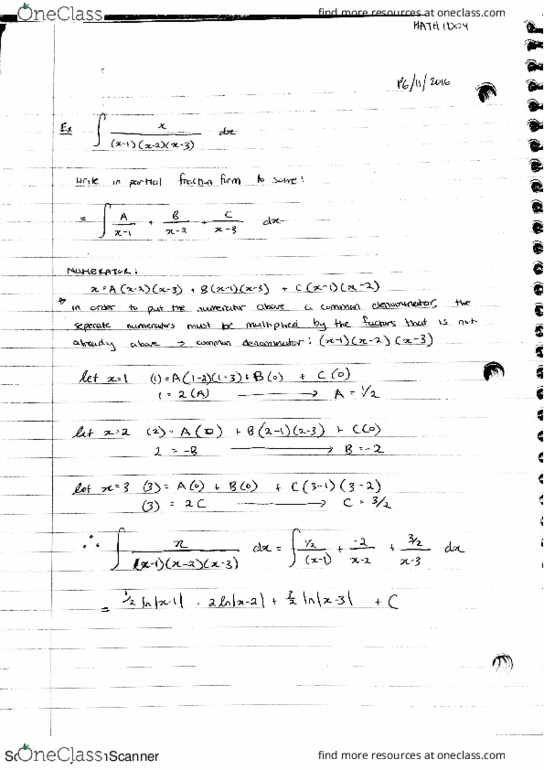 OneClass find more resources at oneclass.com
MATH 1D04
16/11/2016
Ex ∫ x / (x-1)(x-2)(x-3) dx
write in partial fraction form to solve:
= ∫ A/x-1 + B/x-2 + C/x-3 dx
NUMERATOR:
x = A(x-2)(x-3) + B(x-1)(x-3) + C(x-1)(x-2)
in order to put the numerator above a common denominator, the
seperate numerators must be multiplied by the factors that is not
already above → common denominator: (x-1)(x-2)(x-3)
let x=1 (1) = A(1-2)(1-3) + B(0) + C(0)
1 = 2(A) → A = 1/2
let x=2 (2) = A(0) + B(2-1)(2-3) + C(0)
2 = -B → B = -2
let x=3 (3) = A(0) + B(0) + C(3-1)(3-2)
(3) = 2C → C = 3/2
∴ ∫ x / (x-1)(x-2)(x-3) dx = ∫ 1/2/(x-1) + -2/x-2 + 3/2/x-3 dx
= 1/2 ln|x-1| - 2ln|x-2| + 3/2 ln|x-3| + C
OneClass Scanner find more resources at oneclass.com